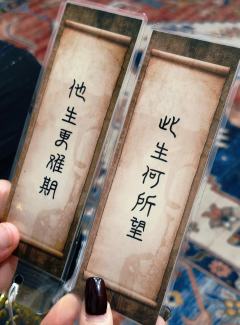 他生更難期
此生何所望